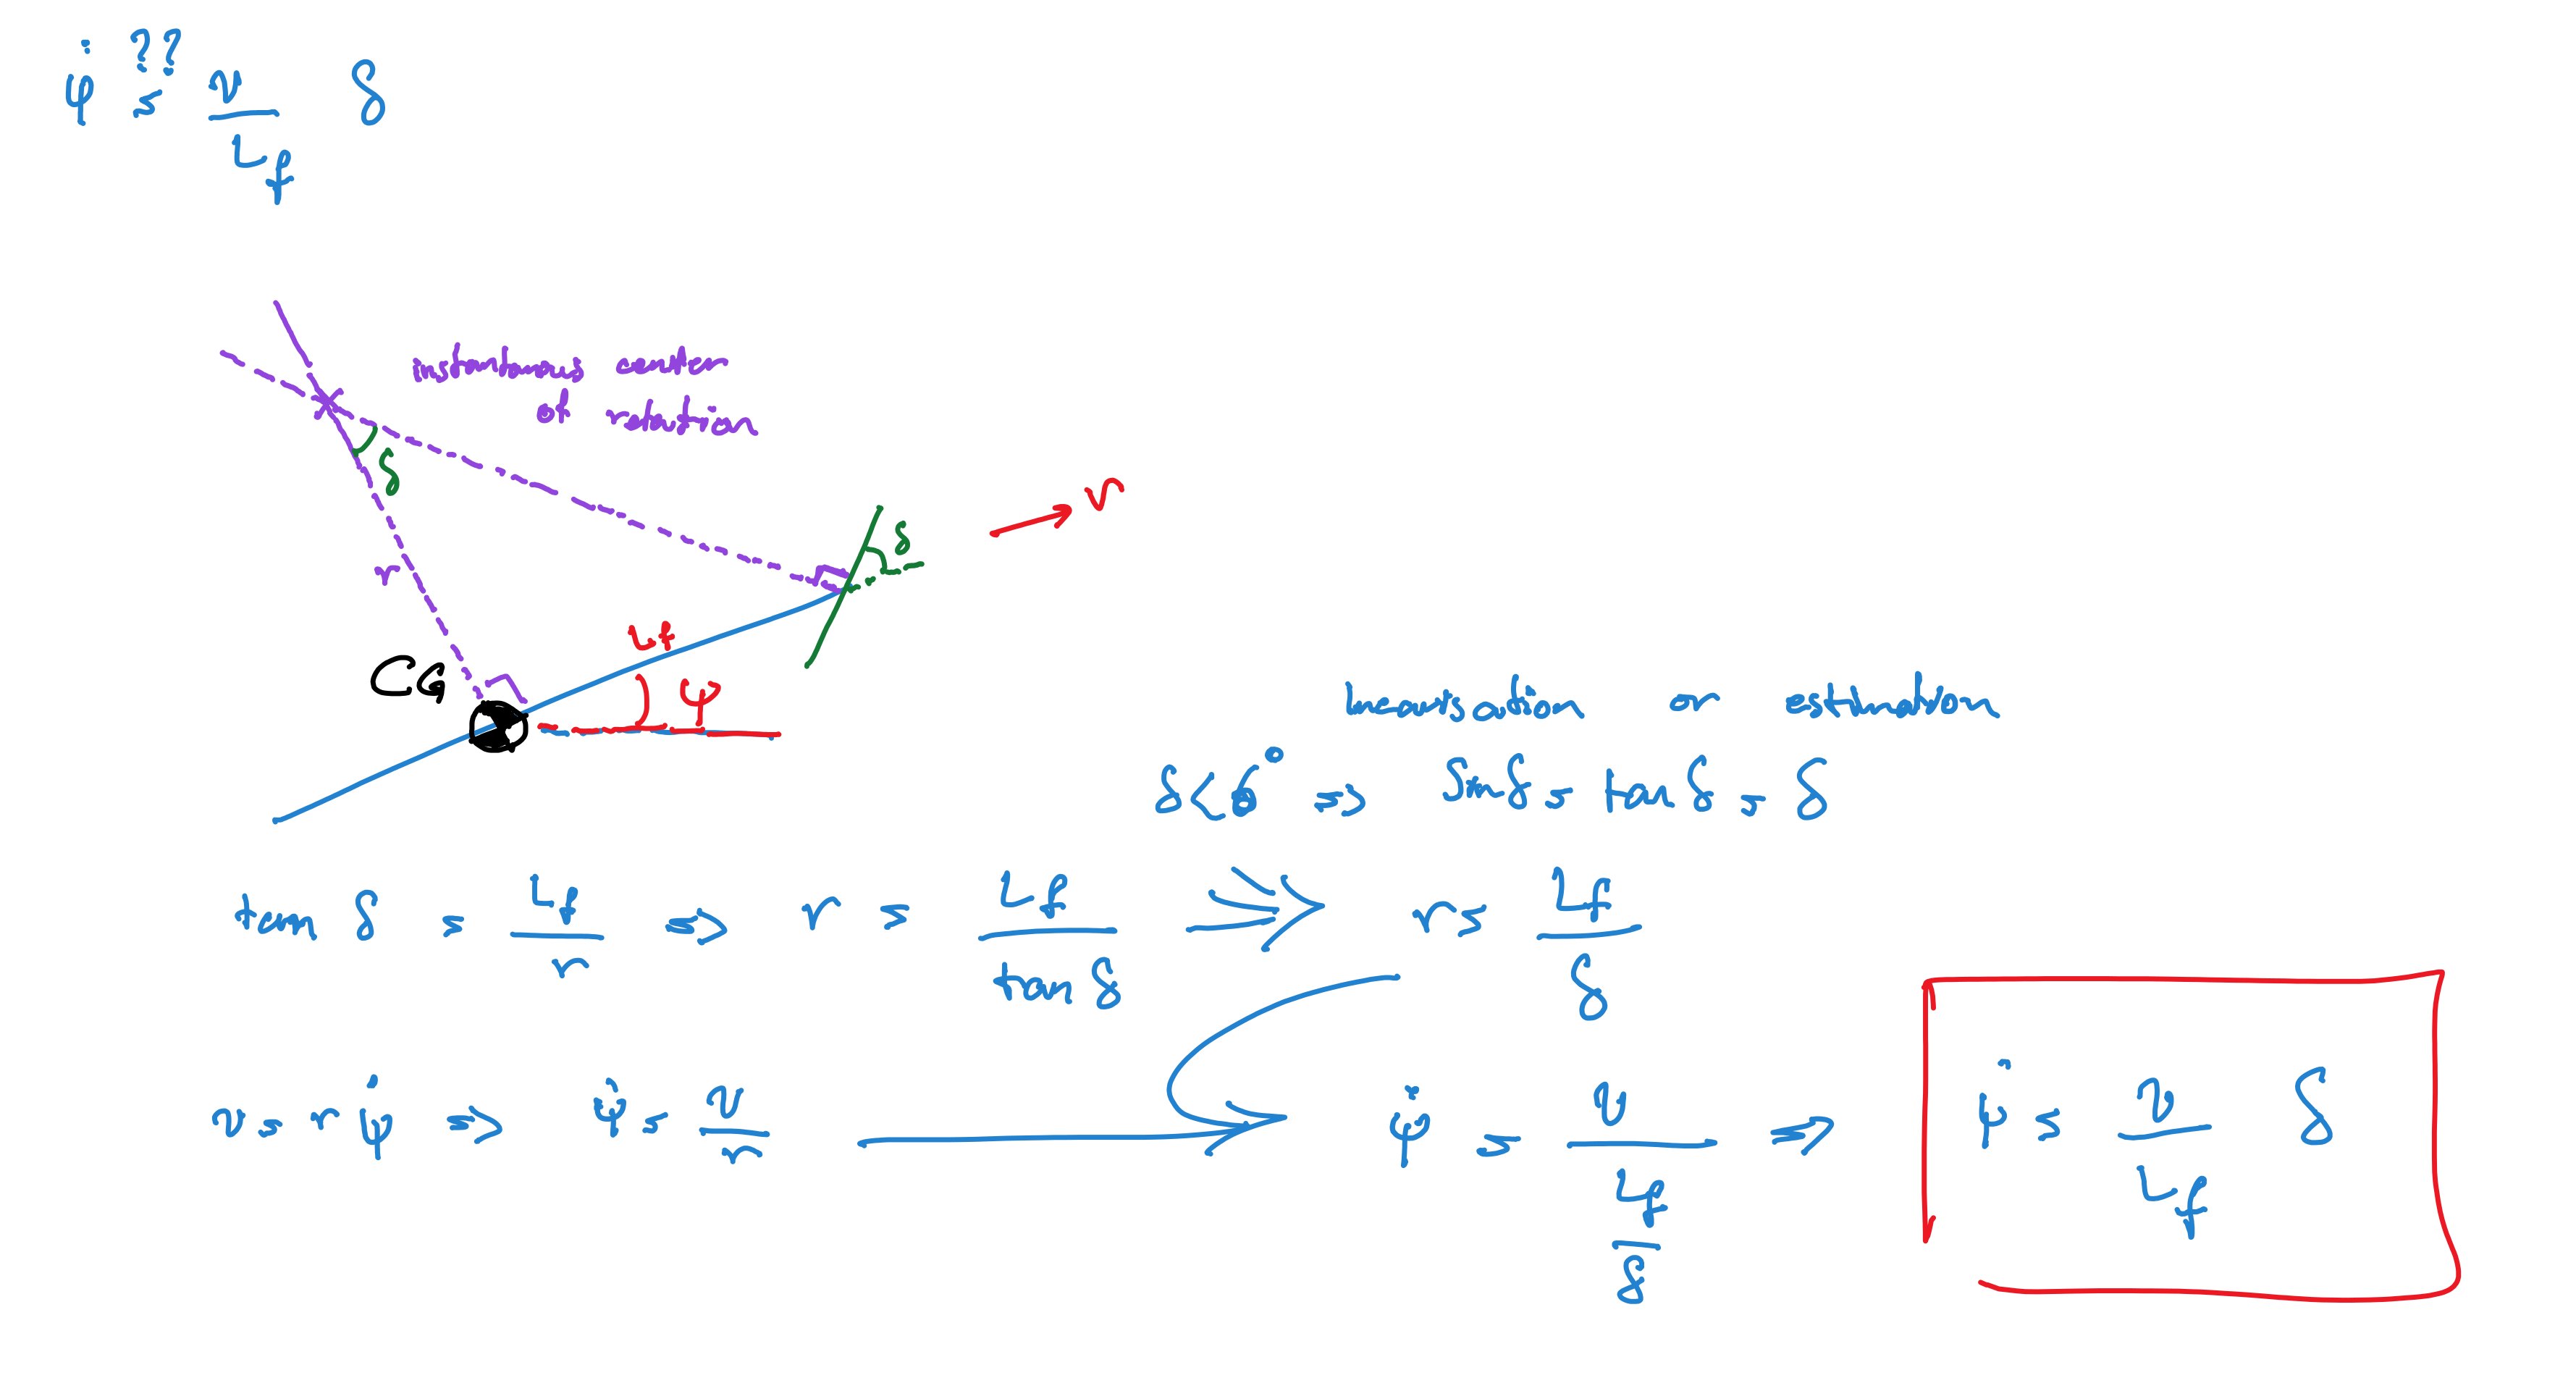 ψ̇ ??= v/L_f δ
instantnous center
of rotation
δ
r
v
δ
L_f
CG
ψ
linearisation or estimation
δ<6° => sin δ = tan δ = δ
tan δ = L_f/r => r = L_f/tan δ => r = L_f/δ
v = r ψ̇ => ψ̇ = v/r → ψ̇ = v/(L_f/δ) => ψ̇ = v/L_f δ